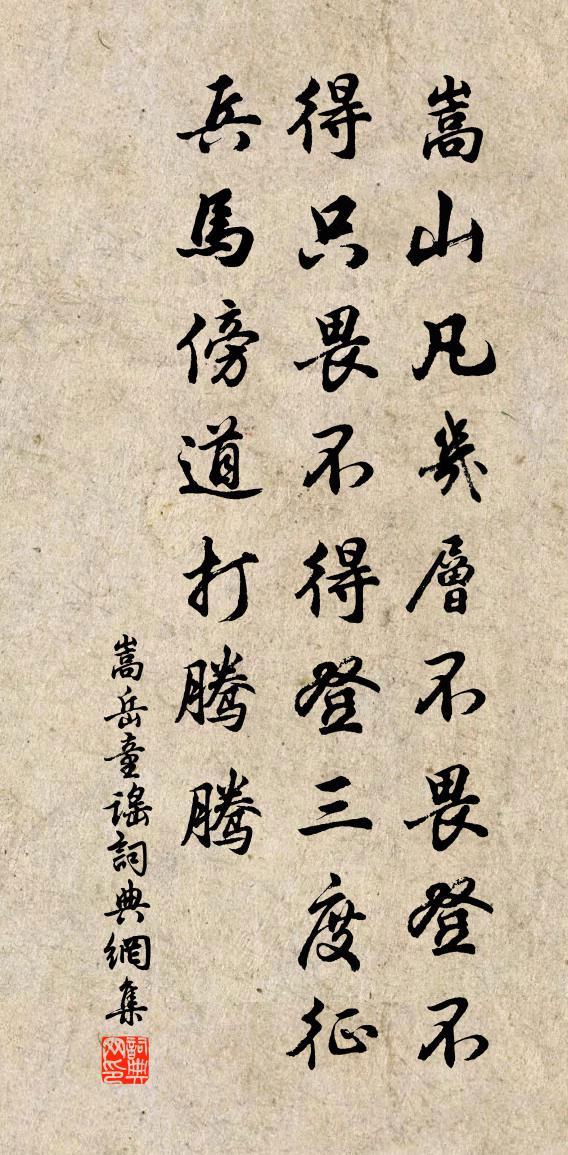 嵩山凡幾層不畏登不
得只畏不得登三度征
兵馬傍道打騰騰
嵩岳童謠詞典網集
詞典
網印